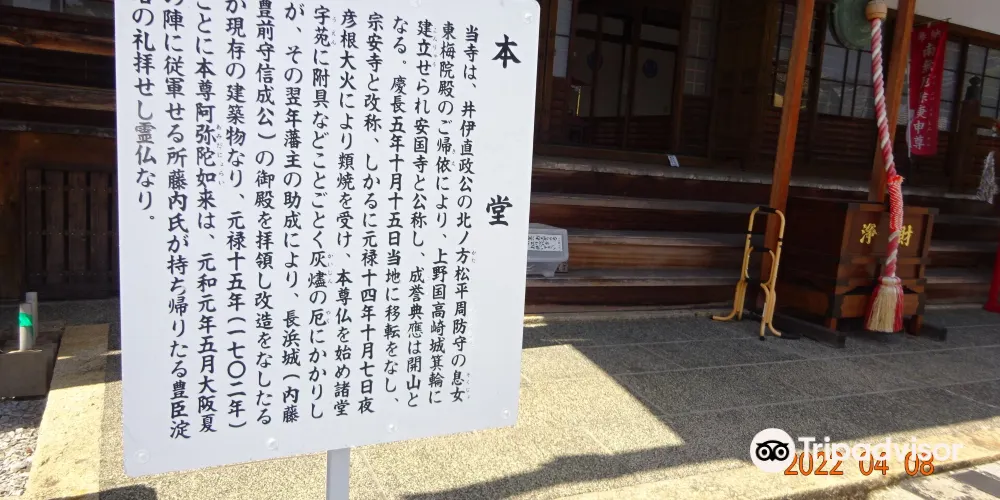 本堂
当寺は、井伊直政公の北ノ方松平周防守の息女
東梅院殿のご帰依により、上野国高崎城箕輪に
建立せられ安国寺と公称し、成誉典應は開山と
なる。慶長五年十月十五日当地に移転をなし、
宗安寺と改称、しかるに元禄十四年十月七日夜
彦根大火により類焼を受け、本尊仏を始め諸堂
宇苑に附具などことごとく灰燼の厄にかかりし
が、その翌年藩主の助成により、長浜城(内藤
豊前守信成公)の御殿を拝領し改造をなしたる
が現存の建築物なり、元禄十五年(一七〇二年)
ことに本尊阿弥陀如来は、元和元年五月大阪夏
の陣に従軍せる所藤内氏が持ち帰りたる豊臣淀
の礼拝せし霊仏なり。
浄財
Tripadvisor
2022 04 08